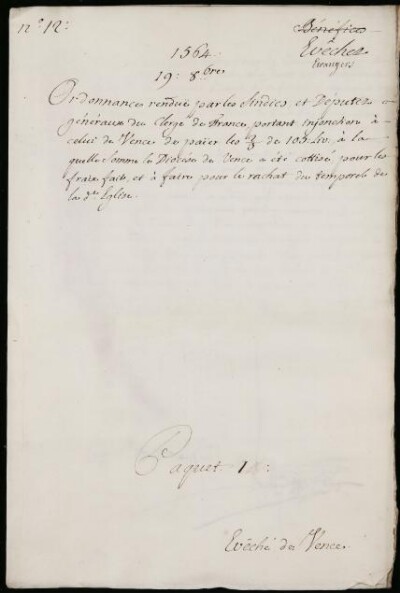 n.º 12:
Bénéfices
Evêchez
Etrangers
1564.
19: 8.bre
Ordonnance rendue par les Sindics et Députez
généraux du Clergé de France, portant injonction à
celui de Vence de païer les 2/3 de 105 liv. à la
quelle somme le Diocèse de Vence a été cottisé pour les
fraix faits, et à faire pour le rachat du temporel de
la d.te Eglise.
Paquet 1:
Evêché de Vence.